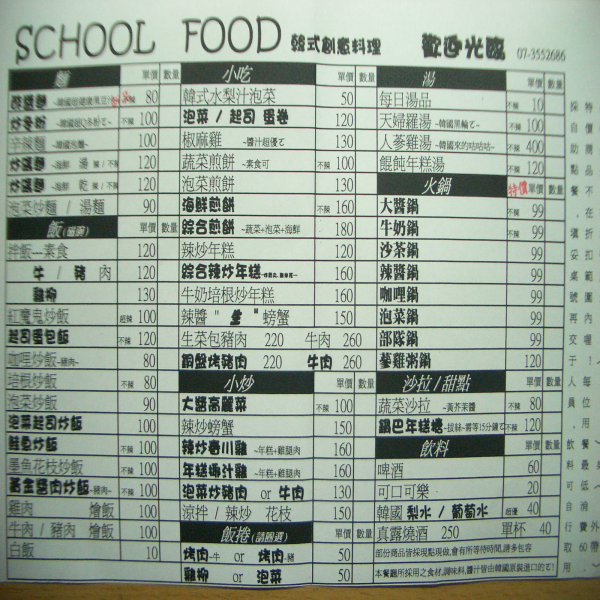 SCHOOL FOOD 韓式創意料理 歡迎光臨 07-3552686
麵 單價 數量
不辣 80
炒冬粉 ~韓國超Q冬粉ㄛ~ 不辣 100
辛辣麵 ~韓國泡麵~ 100
炒醬麵 ~海鮮 湯 辣 / 不辣 120
炒醬麵 ~海鮮 乾 辣 / 不辣 120
泡菜炒麵 / 湯麵 90
飯 單價 數量
拌飯—素食 120
牛 / 豬 肉 120
雞柳 130
紅魔鬼炒飯 超辣 100
起司蛋包飯 不辣 120
咖哩炒飯 ~豬肉~ 80
培根炒飯 不辣 80
泡菜炒飯 90
泡菜起司炒飯 100
鮭魚炒飯 不辣 100
墨魚花枝炒飯 100
黃金醬肉炒飯 ~豬肉~ 不辣 100
雞肉 燴飯 100
牛肉 / 豬肉 燴飯 100
白飯 10
小吃 單價 數量
韓式水梨汁泡菜 50
泡菜 / 起司 蛋卷 120
椒麻雞 ~醬汁超優ㄛ 130
蔬菜煎餅 ~素食可 不辣 100
泡菜煎餅 130
海鮮煎餅 不辣 160
綜合煎餅 ~蔬菜+泡菜+海鮮 180
辣炒年糕 120
綜合辣炒年糕 160
牛奶培根炒年糕 160
辣醬 " 生 " 螃蟹 150
生菜包豬肉 220 牛肉 260
銅盤烤豬肉 220 牛肉 260
小炒 單價 數量
大醬高麗菜 不辣 100
辣炒螃蟹 150
辣炒春川雞 ~年糕+雞腿肉 150
年糕橘汁雞 ~年糕+雞腿肉 不辣 150
泡菜炒豬肉 or 牛肉 130
涼拌 / 辣炒 花枝 150
飯捲 (請圈選) 單價 數量
烤肉~牛 or 烤肉~豬 50
雞柳 or 泡菜 50
湯 單價 數量
每日湯品 不辣 10
天婦羅湯 ~韓國黑輪ㄛ~ 不辣 100
人蔘雞湯 ~韓國來的咕咕咕~ 不辣 400
餛飩年糕湯 不辣 120
火鍋 特價 單價 數量
大醬鍋 不辣 99
牛奶鍋 不辣 99
沙茶鍋 99
辣醬鍋 99
咖哩鍋 99
泡菜鍋 99
部隊鍋 99
蔘雞粥鍋 120
沙拉 / 甜點 單價 數量
蔬菜沙拉 ~黃芥茉醬 不辣 80
鍋巴年糕捲 ~拔絲~需等15分鐘ㄛ~ 不辣 120
飲料 單價 數量
啤酒 60
可口可樂 20
韓國 梨水 / 葡萄水 超優 40
真露燒酒 250 單杯 40
部份商品皆採現點現做,會有所等待時間,請多包容
本餐廳所採用之食材,調味料,醬汁皆由韓國原裝進口的ㄛ!